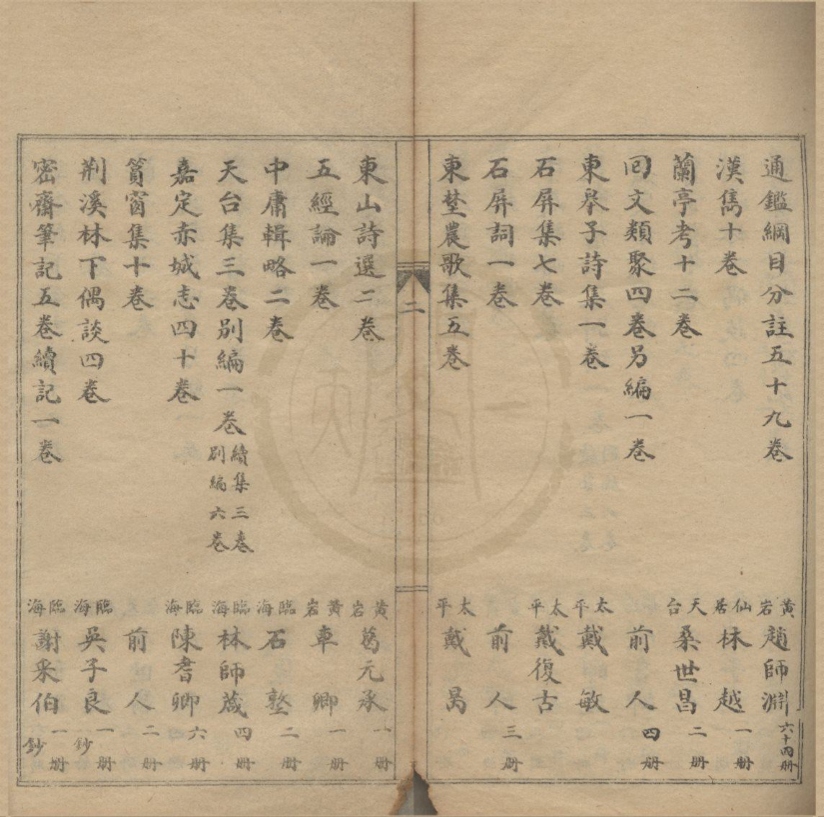 通鑑綱目分註五十九卷 黃岩 趙師淵 六十四册
漢雋十卷 仙居 林越 一册
蘭亭考十二卷 天台 桑世昌 二册
回文類聚四卷另編一卷 前人 四册
東皋子詩集一卷 太平 戴敏
石屏集七卷 太平 戴復古
石屏詞一卷 前人 三册
東埜農歌集五卷 太平 戴昺
二
東山詩選二卷 黃岩 葛元承 一册
五經論一卷 黃岩 車卿 一册
中庸輯略二卷 臨海 石𡼖 二册
天台集三卷别編一卷 續集三卷别編六卷 臨海 林師蒧 四册
嘉定赤城志四十卷 臨海 陳耆卿 六册
篔窗集十卷 前人 二册
荆溪林下偶談四卷 臨海 吳子良 一册 鈔
密齋筆記五卷續記一卷 臨海 謝采伯 一册 鈔